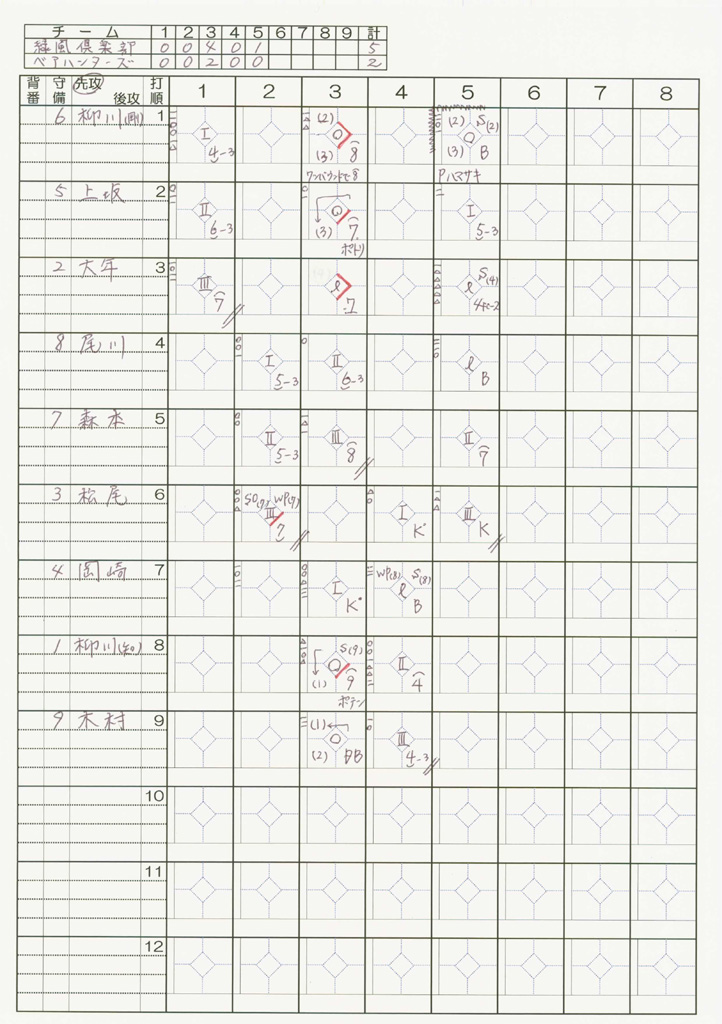 チーム 1 2 3 4 5 6 7 8 9 計
緑風倶楽部 0 0 4 0 1 5
ベアハンターズ 0 0 2 0 0 2
背番 守備 先攻 後攻 打順 1 2 3 4 5 6 7 8
6 柳川(剛) 1 I 4-3 (2) (3) 8 (2) S(2) (3) B
ワンバウンドで8 Pハマサキ
5 上坂 2 II 6-3 (3) 7 I 5-3
ポトリ
2 大年 3 III 7 l 7 l S(4)
8 尾川 4 I 5-3 II 6-3 l B
7 森本 5 II 5-3 III 8 II 7
3 松尾 6 WP(7) III 7 I K III K
4 岡崎 7 I K WP(8) S(8) l B
1 柳川(知) 8 S(9) (1) 9 II 4
ポテン
9 木村 9 (1) (2) BB III 4-3
10
11
12